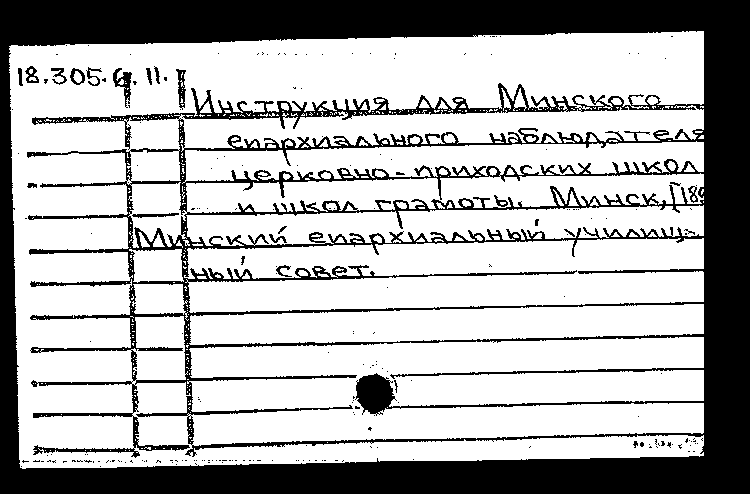 18.305.6.11.
Инструкция для Минского
епархиального наблюдателя
церковно-приходских школ
и школ грамоты. Минск, [189
Минский епархиальный училищ-
ный совет.